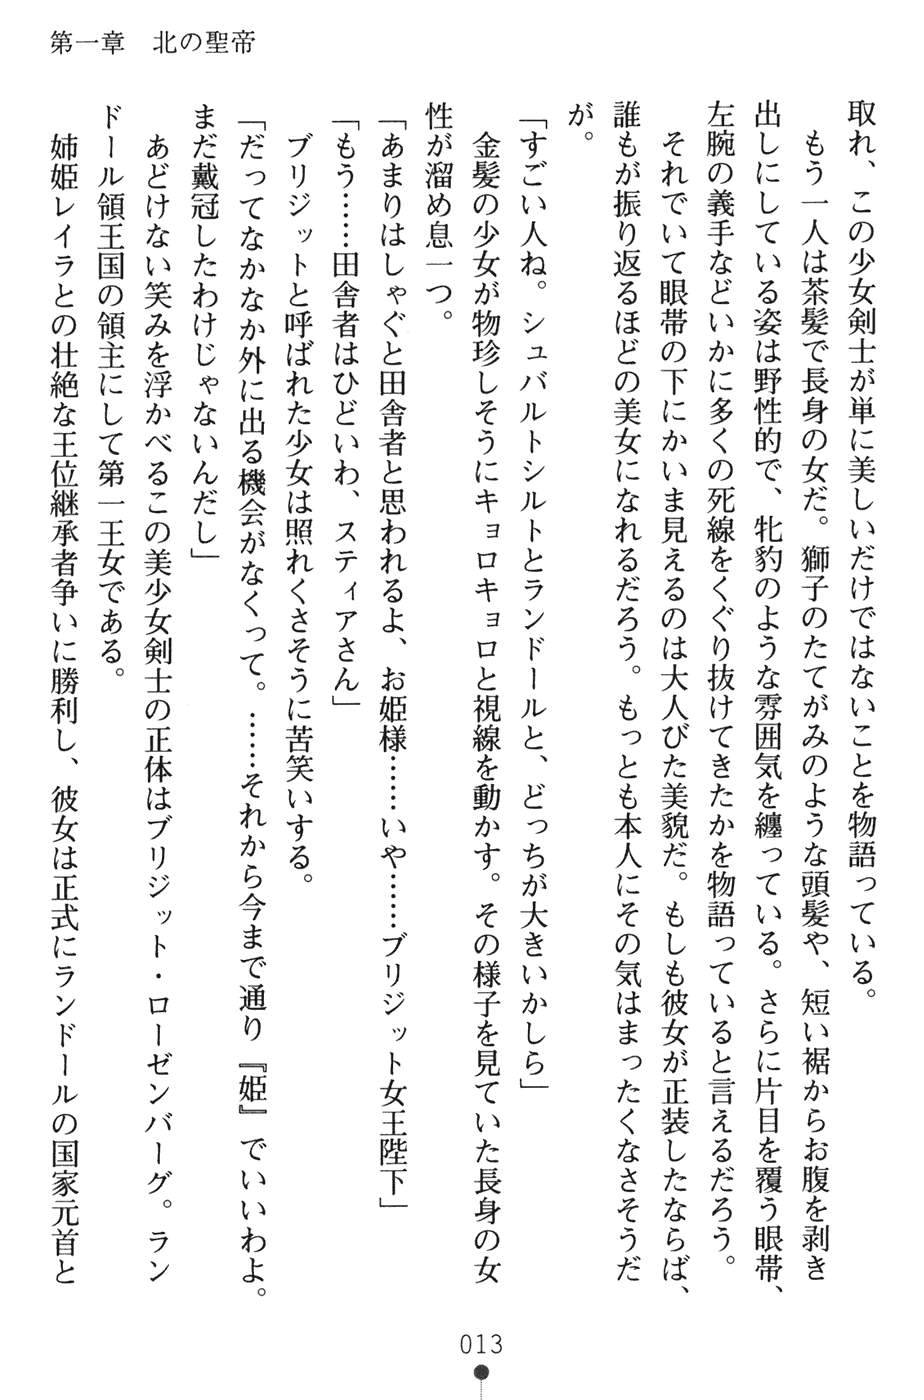 第一章　北の聖帝
取れ、この少女剣士が単に美しいだけではないことを物語っている。
　もう一人は茶髪で長身の女だ。獅子のたてがみのような頭髪や、短い裾からお腹を剥き
出しにしている姿は野性的で、牝豹のような雰囲気を纏っている。さらに片目を覆う眼帯、
左腕の義手などいかに多くの死線をくぐり抜けてきたかを物語っていると言えるだろう。
　それでいて眼帯の下にかいま見えるのは大人びた美貌だ。もしも彼女が正装したならば、
誰もが振り返るほどの美女になれるだろう。もっとも本人にその気はまったくなさそうだ
が。
「すごい人ね。シュバルトシルトとランドールと、どっちが大きいかしら」
　金髪の少女が物珍しそうにキョロキョロと視線を動かす。その様子を見ていた長身の女
性が溜め息一つ。
「あまりはしゃぐと田舎者と思われるよ、お姫様……いや……ブリジット女王陛下」
「もう……田舎者はひどいわ、スティアさん」
　ブリジットと呼ばれた少女は照れくさそうに苦笑いする。
「だってなかなか外に出る機会がなくって。……それから今まで通り『姫』でいいわよ。
まだ戴冠したわけじゃないんだし」
　あどけない笑みを浮かべるこの美少女剣士の正体はブリジット・ローゼンバーグ。ラン
ドール領王国の領主にして第一王女である。
　姉姫レイラとの壮絶な王位継承者争いに勝利し、彼女は正式にランドールの国家元首と
013